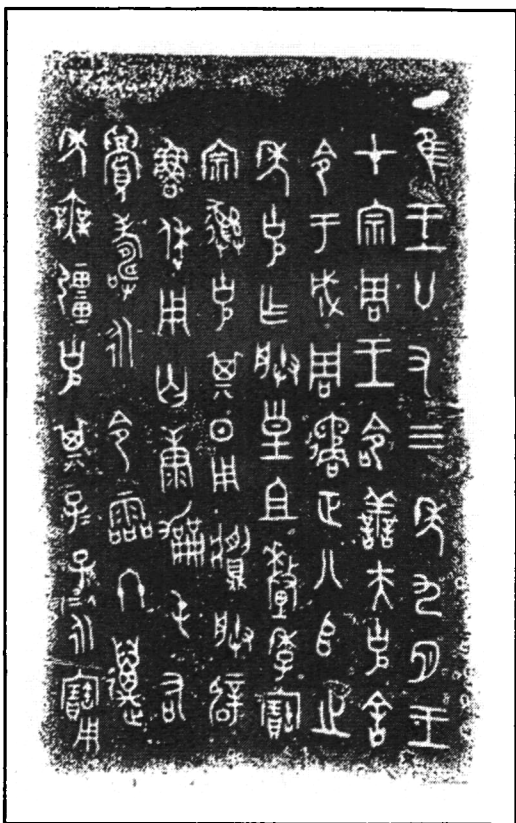 隹王廿又三年九月王
才宗周王令善夫克舍
令于成周遹正八𠂤之
年克乍朕皇且釐季寶
宗彝克其日用𩰬朕辟
魯休用匄康勵屯右
眉壽永令霝冬萬
年無疆克其子子孫孫永寶用